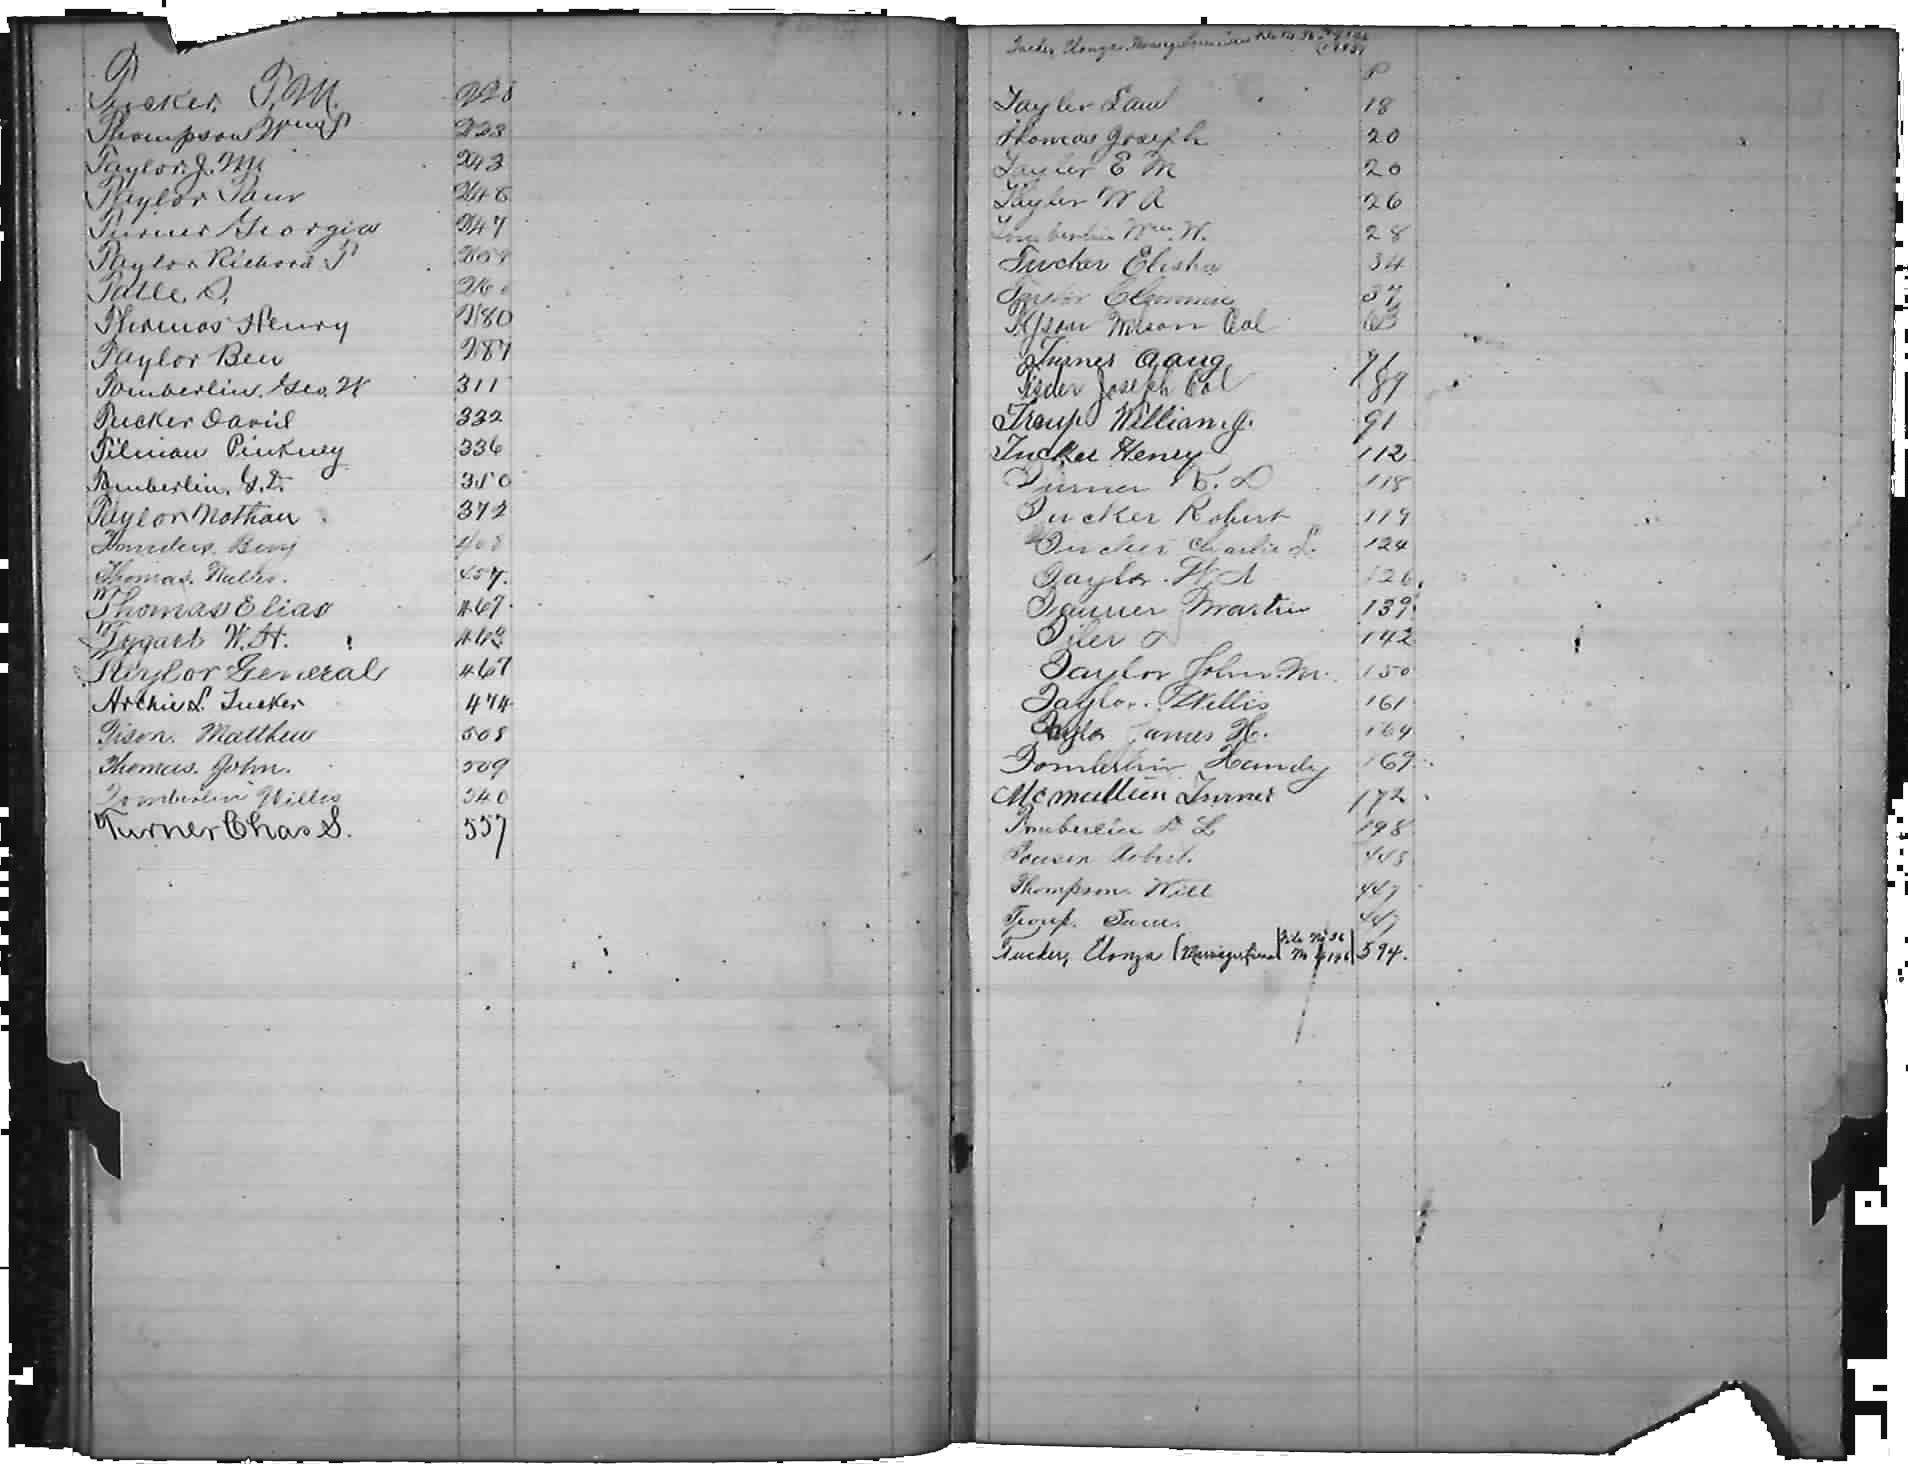 T
Tucker, T. M. 228
Thompson W 223
Taylor J. M. 243
Taylor Saur 246
Turner Georgia 247
Taylor Richard T 259
Tatle S.
Thomas Henry 280
Taylor Ben 287
Tomberlin, Geo. W 311
Tucker David 332
Tilman Pinkney 336
Tomberlin, G. D. 350
Taylor Nathan 372
Benj
Thomas. 457.
Thomas Elias 467
Tygart W. H. 462
Taylor General 467
Archie L. Tucker 474
Tison. Matthew 508
Thomas. John. 509
Tomberlin Willis 540
Turner Chas S. 557
Tucker, Elonza
P
Tayler Sam 18
Thomas Joseph 20
Tayler E M 20
Tayler W A 26
Tomberlin Wm. W. 28
Tucker Elisha 34
Taylor 37
Tyson Mison Col 63
Turner 71
Joseph Col 89
Troup William J. 91
Tucker Henry 112
Turner 118
Tucker Robert 119
Tucker Charlie L. 124
Taylor. W A 126
Tanner Martin 139
Tiler 142
Taylor John. M. 150
Taylor. Willis 161
Taylor James H. 164
Tomberlin Handy 169
McMullen Turner 172
Tomberlin L 198
Robert. 448
Thompson. Will 447
Troup. Sam. 447
Tucker, Elonza 594.